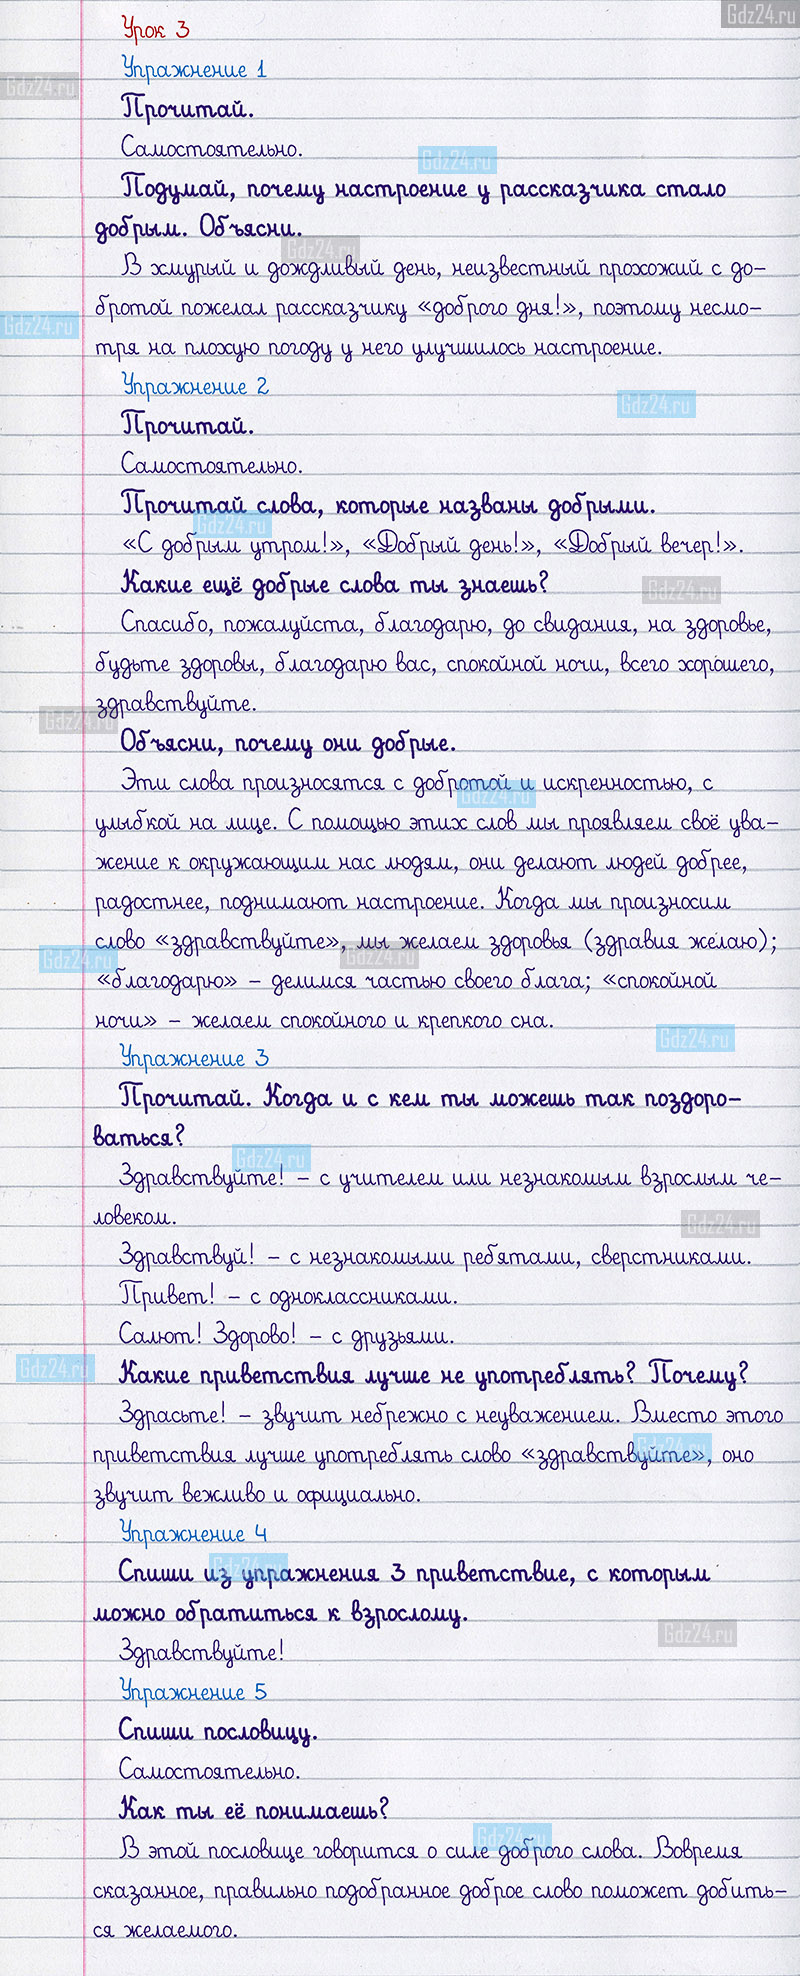 Gdz24.ru
Урок 3
Упражнение 1
Gdz24.ru
Прочитай.
Самостоятельно.
Gdz24.ru
Подумай, почему настроение у рассказчика стало
добрым. Объясни.
Gdz24.ru
В хмурый и дождливый день, неизвестный прохожий с до-
бротой пожелал рассказчику «доброго дня!», поэтому несмо-
Gdz24.ru
тря на плохую погоду у него улучшилось настроение.
Упражнение 2
Gdz24.ru
Прочитай.
Самостоятельно.
Прочитай слова, которые названы добрыми.
Gdz24.ru
«С добрым утром!», «Добрый день!», «Добрый вечер!».
Какие ещё добрые слова ты знаешь?
Gdz24.ru
Спасибо, пожалуйста, благодарю, до свидания, на здоровье,
будьте здоровы, благодарю вас, спокойной ночи, всего хорошего,
здравствуйте.
Gdz24.ru
Объясни, почему они добрые.
Эти слова произносятся с добротой и искренностью, с
Gdz24.ru
улыбкой на лице. С помощью этих слов мы проявляем своё ува-
жение к окружающим нас людям, они делают людей добрее,
радостнее, поднимают настроение. Когда мы произносим
слово «здравствуйте», мы желаем здоровья (здравия желаю);
Gdz24.ru
Gdz24.ru
«благодарю» – делимся частью своего блага; «спокойной
ночи» – желаем спокойного и крепкого сна.
Gdz24.ru
Упражнение 3
Прочитай. Когда и с кем ты можешь так поздоро-
ваться?
Gdz24.ru
Здравствуйте! – с учителем или незнакомым взрослым че-
ловеком.
Gdz24.ru
Здравствуй! – с незнакомыми ребятами, сверстниками.
Привет! – с одноклассниками.
Салют! Здорово! – с друзьями.
Gdz24.ru
Какие приветствия лучше не употреблять? Почему?
Здрасьте! – звучит небрежно с неуважением. Вместо этого
Gdz24.ru
приветствия лучше употреблять слово «здравствуйте», оно
звучит вежливо и официально.
Упражнение 4
Gdz24.ru
Спиши из упражнения 3 приветствие, с которым
можно обратиться к взрослому.
Gdz24.ru
Здравствуйте!
Упражнение 5
Спиши пословицу.
Самостоятельно.
Как ты её понимаешь?
Gdz24.ru
В этой пословице говорится о силе доброго слова. Вовремя
сказанное, правильно подобранное доброе слово поможет добить-
ся желаемого.